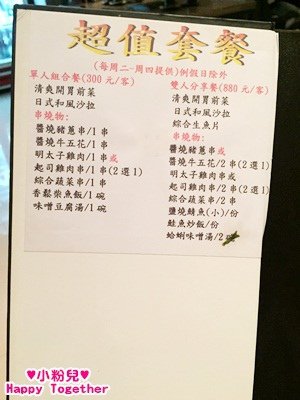 超值套餐
(每周二-周四提供)例假日除外
單人組合餐(300元/客)
清爽開胃前菜
日式和風沙拉
串燒物:
醬燒豬蔥串/1串
醬燒牛五花/1串
明太子雞肉串/1串或
起司雞肉串/1串(2選1)
綜合蔬菜串/1串
香鬆柴魚飯/1碗
味噌豆腐湯/1碗
雙人分享餐(880元/客)
清爽開胃前菜
日式和風沙拉
綜合生魚片
串燒物:
醬燒豬蔥串/2串或
醬燒牛五花/2串(2選1)
明太子雞肉串/2串或
起司雞肉串/2串(2選1)
綜合蔬菜串/2串
鹽燒鯖魚(小)/份
鮭魚炒飯/份
蛤蜊味噌湯/2碗
♥小粉兒♥
Happy Together